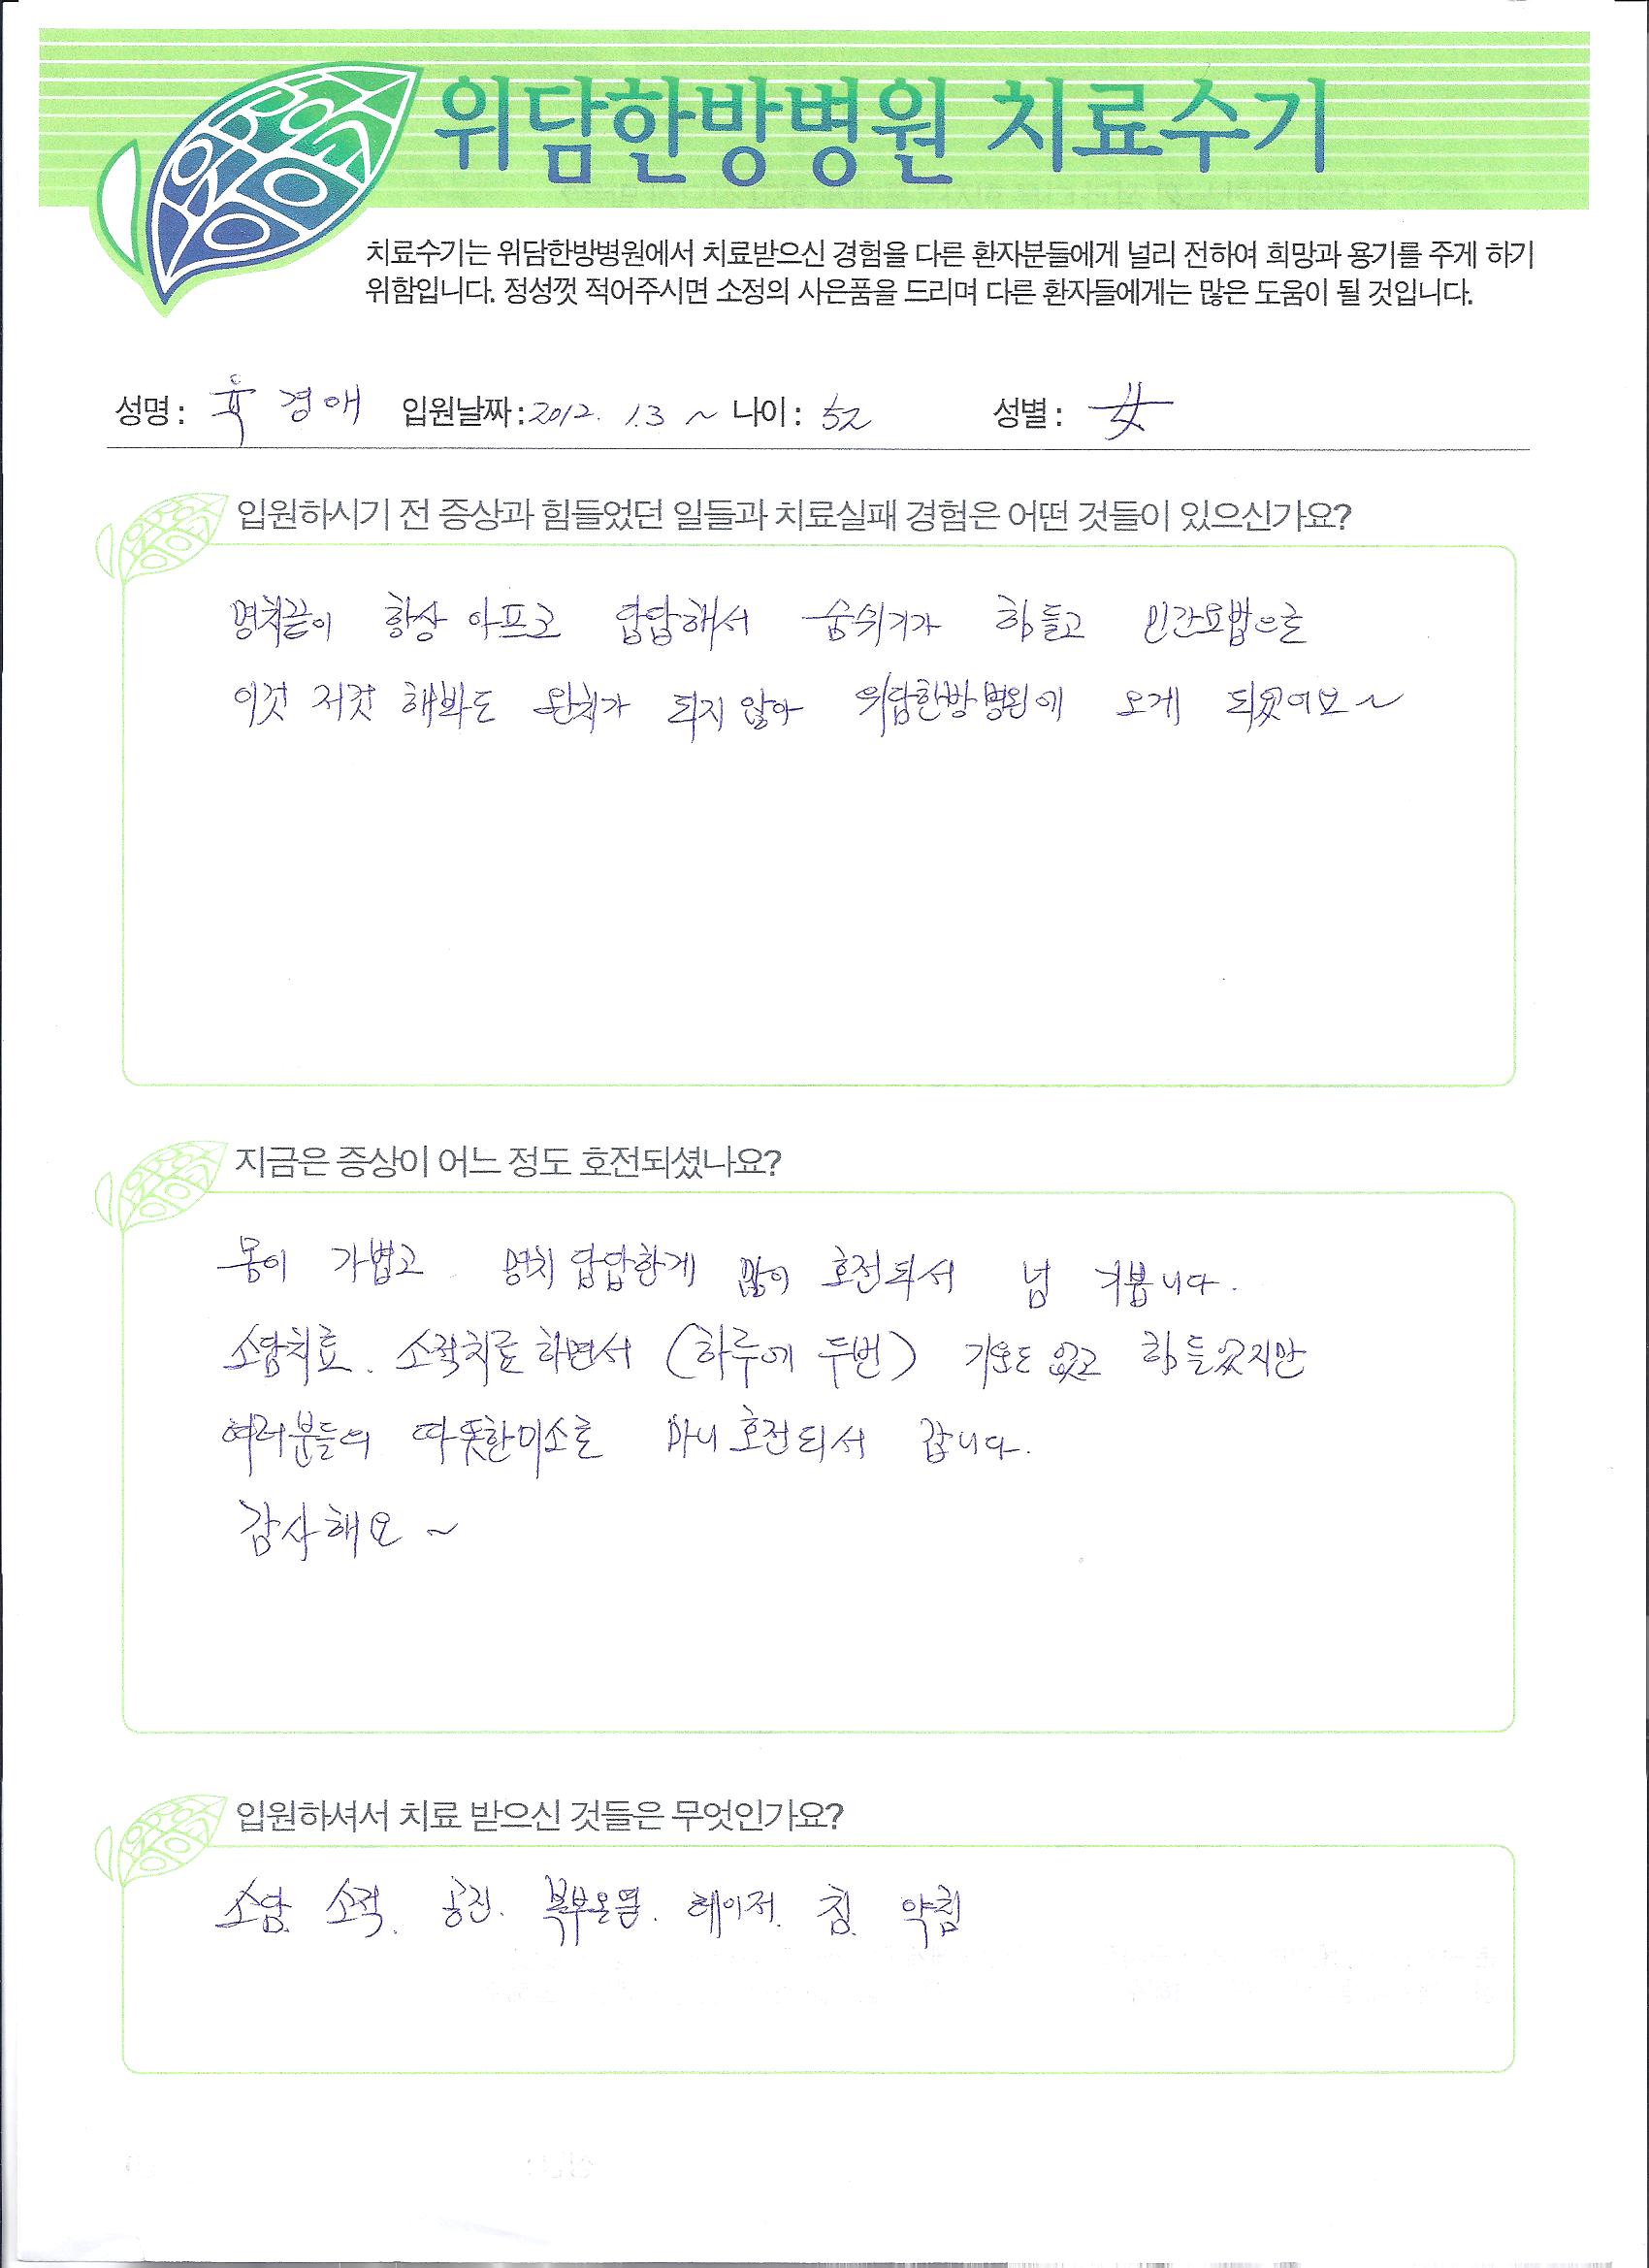 위담한방병원 치료수기
치료수기는 위담한방병원에서 치료받으신 경험을 다른 환자분들에게 널리 전하여 희망과 용기를 주게 하기
위함입니다. 정성껏 적어주시면 소정의 사은품을 드리며 다른 환자들에게는 많은 도움이 될 것입니다.
성명: 경애 입원날짜: 2012. 1.3 ~ 나이: 52 성별: 女
입원하시기 전 증상과 힘들었던 일들과 치료실패 경험은 어떤 것들이 있으신가요?
명치끝이 항상 아프고 답답해서 숨쉬기가 힘들고 민간요법으로
이것 저것 해봐도 완치가 되지 않아 위담한방병원에 오게 되었어요~
지금은 증상이 어느 정도 호전되셨나요?
몸이 가볍고 명치 답답한게 많이 호전되서 넘 기쁩니다.
소담치료. 소적치료 하면서 (하루에 두번) 기운도 없고 힘들었지만
여러분들의 따뜻한미소로 마니 호전되서 갑니다.
감사해요~
입원하셔서 치료 받으신 것들은 무엇인가요?
소담. 소적. 공진. 복부온열. 레이저. 침. 약침